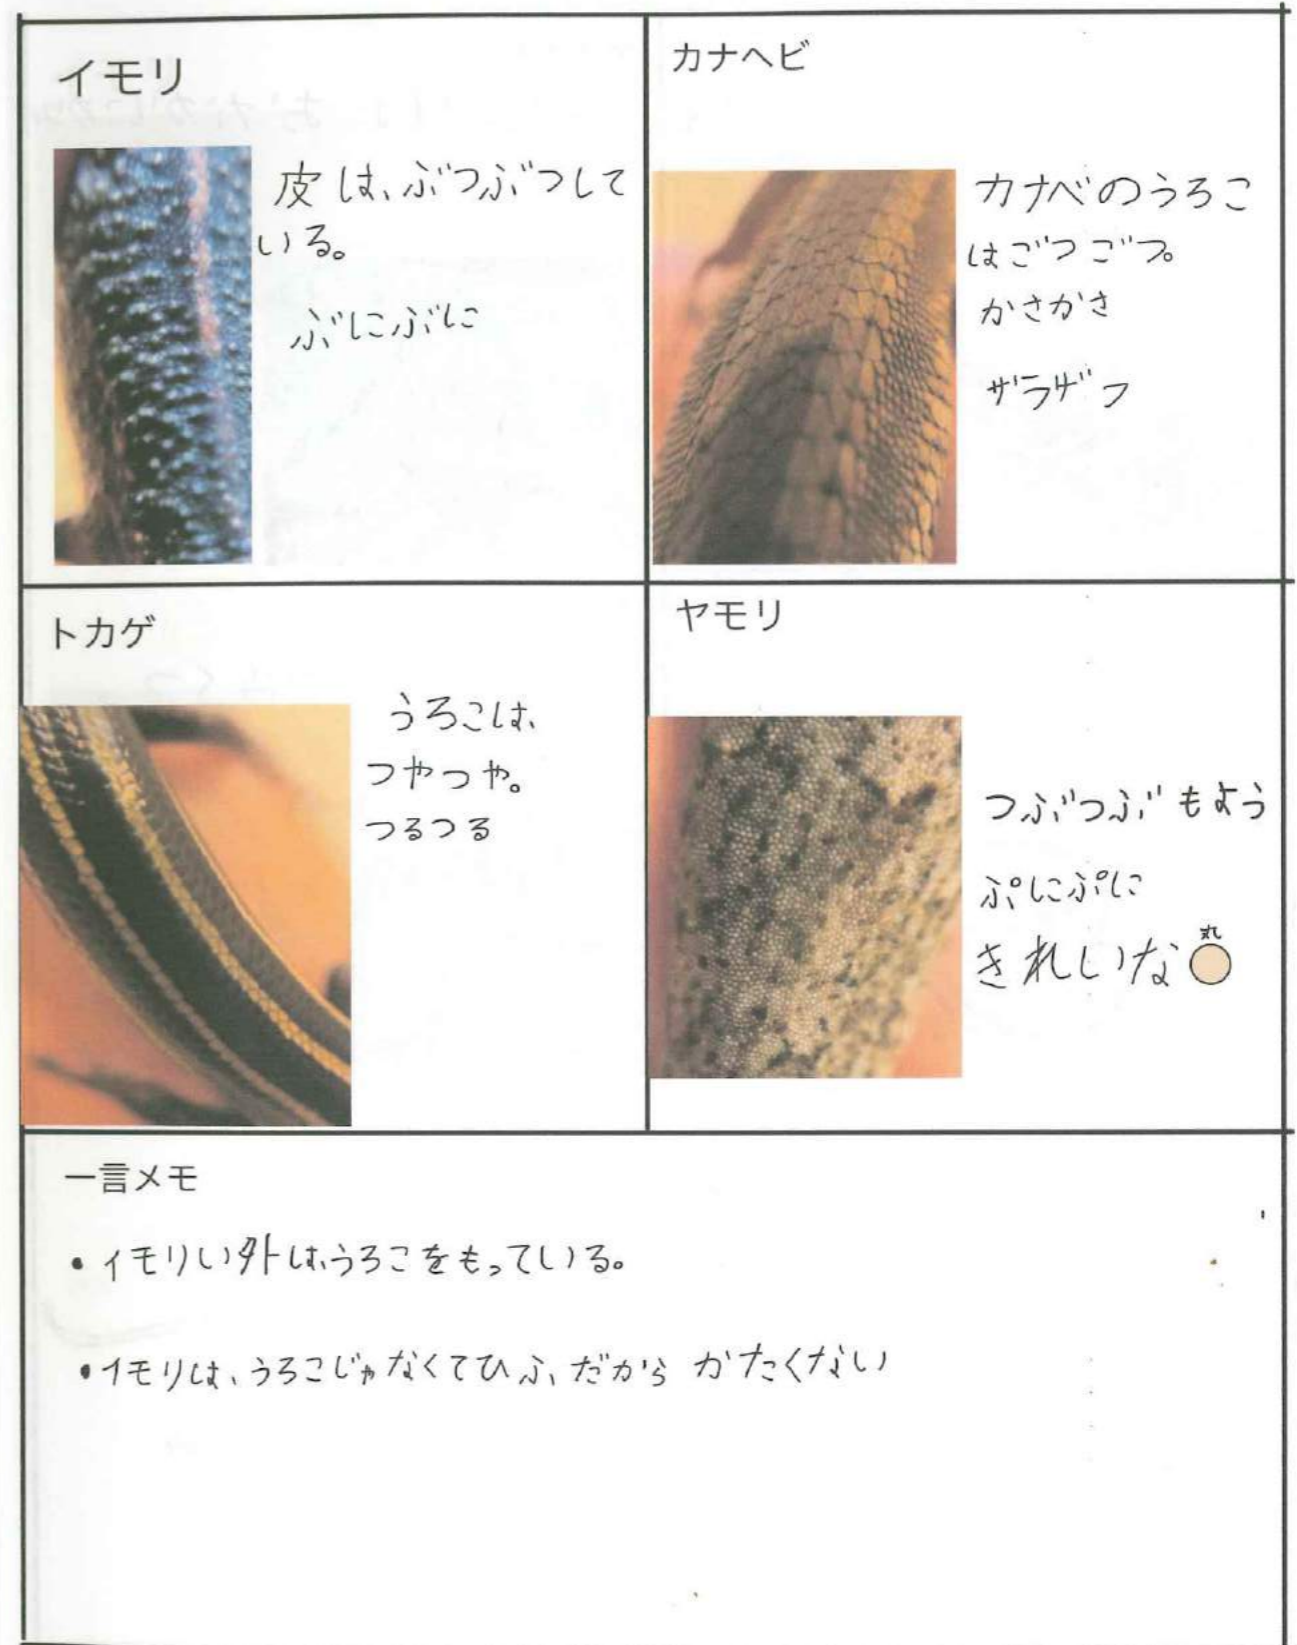 イモリ
皮は、ぶつぶつして
いる。
ぶにぶに
カナヘビ
カナベのうろこ
はごつごつ。
かさかさ
ザラザラ
トカゲ
うろこは、
つやつや。
つるつる
ヤモリ
つぶつぶもよう
ぷにぷに
丸
きれいな
一言メモ
・イモリい外は、うろこをもっている。
・イモリは、うろこじゃなくてひふ、だから かたくない